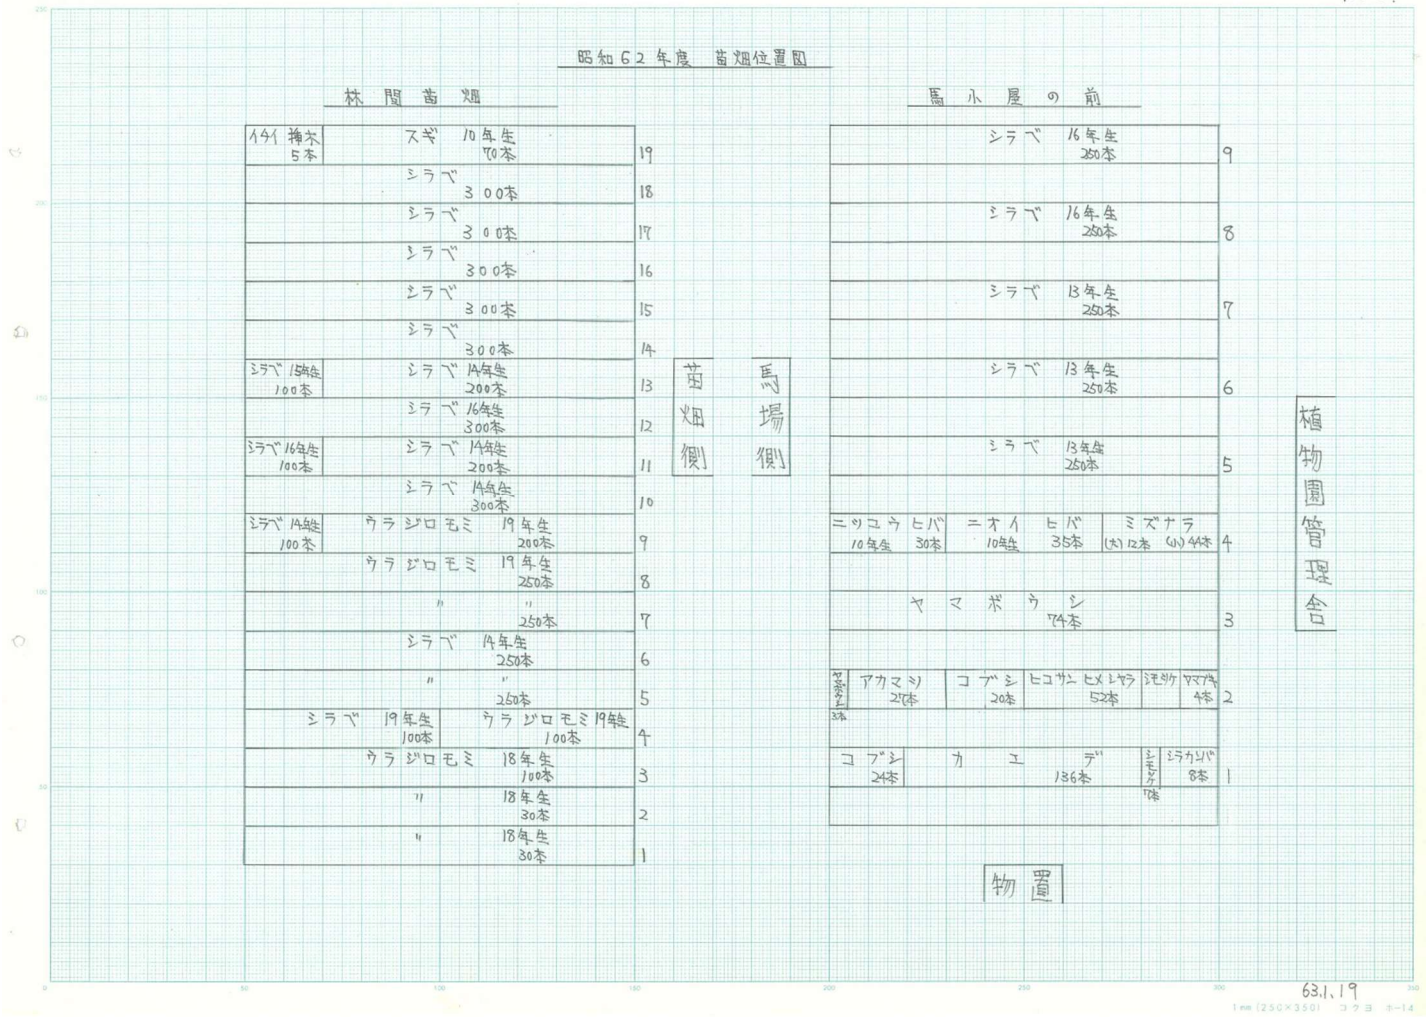 昭和62年度 苗畑位置図
林間苗畑
イチイ 挿木
5本
スギ 10年生
70本
19
シラベ
300本
18
シラベ
300本
17
シラベ
300本
16
シラベ
300本
15
シラベ
300本
14
シラベ 15年生
100本
シラベ 14年生
200本
13
シラベ 16年生
300本
12
シラベ 16年生
100本
シラベ 14年生
200本
11
シラベ 14年生
300本
10
シラベ 14年生
100本
ウラジロモミ 19年生
200本
9
ウラジロモミ 19年生
250本
8
〃 〃
250本
7
シラベ 14年生
250本
6
〃 〃
250本
5
シラベ 19年生
100本
ウラジロモミ 19年生
100本
4
ウラジロモミ 18年生
100本
3
〃 18年生
30本
2
〃 18年生
30本
1
苗畑側
馬場側
馬小屋の前
シラベ 16年生
250本
9
シラベ 16年生
250本
8
シラベ 13年生
250本
7
シラベ 13年生
250本
6
シラベ 13年生
250本
5
ニッコウヒバ
10年生 30本
ニオイヒバ
10年生 35本
ミズナラ
(大)12本 (小)44本
4
ヤマボウシ
74本
3
3本
アカマツ
27本
コブシ
20本
ヒコサンヒメシャラ
52本
シモツケ
ヤマブキ
4本
2
コブシ
24本
カエデ
136本
シモツケ
7本
シラカンバ
8本
1
植物園管理舎
物置
63.1.19
1mm(250×350) コクヨ ホ-14
0
50
100
150
200
250
300
350
50
100
150
200
250